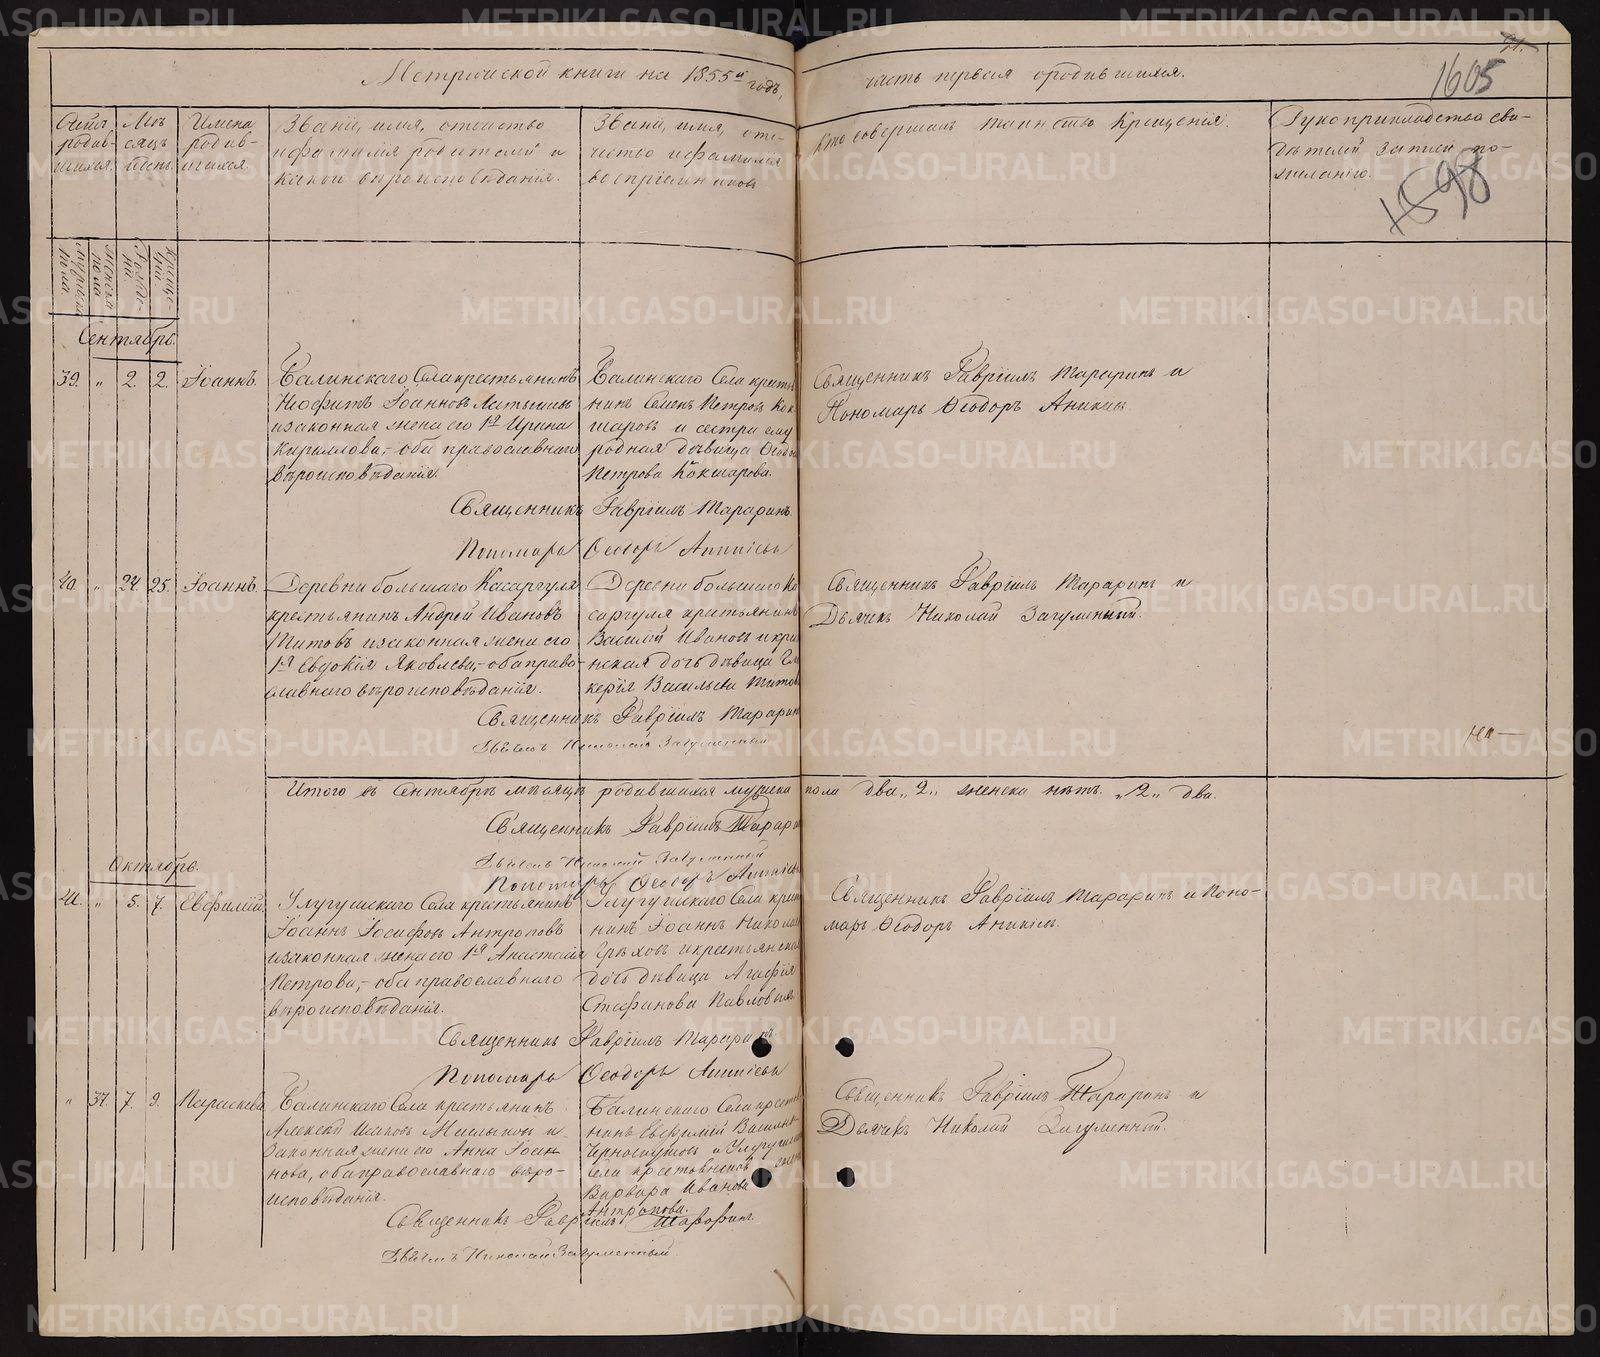 Метрической книги на 1855й годъ, часть первая о родившихся.
1605
1598
Счетъ родив-шихся.
Мѣ-сяцъ и день.
Имена родив-шихся.
Званіе, имя, отчество
и фамилія родителей и
какого вѣроисповѣданія.
Званіе, имя, оте-
чество и фамилія
воспріемниковъ
Кто совершалъ таинство Крещенія.
Рукоприкладство сви-
дѣтелей записи по
желанію.
мужеска пола
женска пола
рожде-нія
креще-нія
Сентябрь.
39. „ 2. 2. Іоаннъ.
села крестьянинъ
Неофитъ Іоанновъ
и законная жена его 1я Ирина
Кириллова,- оба православнаго
вѣроисповѣданія.
Села крестья-
нинъ Семенъ Петровъ Кок-
шаровъ и сестра ему
родная дѣвица
Петрова Кокшарова.
Священникъ Гавріилъ Тараринъ и
Пономарь Ѳеодоръ Аникинъ
Священникъ Гавріилъ Тараринъ.
Пономарь Ѳеодоръ
40. „ 24. 25. Іоаннъ.
Деревни большаго Касаргуля
крестьянинъ Андрей Ивановъ
Титовъ и законная жена его
1я Евдокія Яковлева,- оба право-
славнаго вѣроисповѣданія.
Деревни большаго Ка-
саргуля крестьянинъ
Василій Ивановъ и кресть-
янская дочь дѣвица Гли-
керія Васильева Титова
Священникъ Гавріилъ Тараринъ и
Дьячекъ Николай Загуменный.
Священникъ Гавріилъ Тараринъ
Дьячекъ Николай Загуменный
Итого въ Сентябрѣ мѣсяцѣ родившихся мужеска пола два „2„ женска нѣтъ. „2„ два.
Священникъ Гавріилъ Тараринъ
Дьячекъ Николай Загуменный
Пономарь Ѳеодоръ
Октябрь.
41. „ 5. 7. Евфимій
Улугушскаго Села крестьянинъ
Іоаннъ Іосифовъ Антроповъ
и законная жена его 1я Анастасія
Петрова,- оба православнаго
вѣроисповѣданія.
Улугушскаго Села кресть-
нинъ Іоаннъ Николаевъ
Грѣховъ и крестьянская
дочь дѣвица Агафія
Стефанова Павловыхъ
Священникъ Гавріилъ Тараринъ и Поно-
марь Ѳеодоръ
Священникъ Гавріилъ Тараринъ
Пономарь Ѳеодоръ
„ 37. 7. 9. Параскева
Села крестьянинъ
Алексѣй Исаковъ и
законная жена его Анна Іоан-
нова, оба православнаго вѣро-
исповѣданія.
Села крестья-
нинъ Евфимій Васильевъ
и Улугушскаго
села крестьянская жена
Варвара Иванова
Антропова.
Священникъ Гавріилъ Тараринъ и
Дьячекъ Николай Загуменный.
Священникъ Гавріилъ Тараринъ.
Дьячекъ Николай Загуменный
METRIKI.GASO-URAL.RU